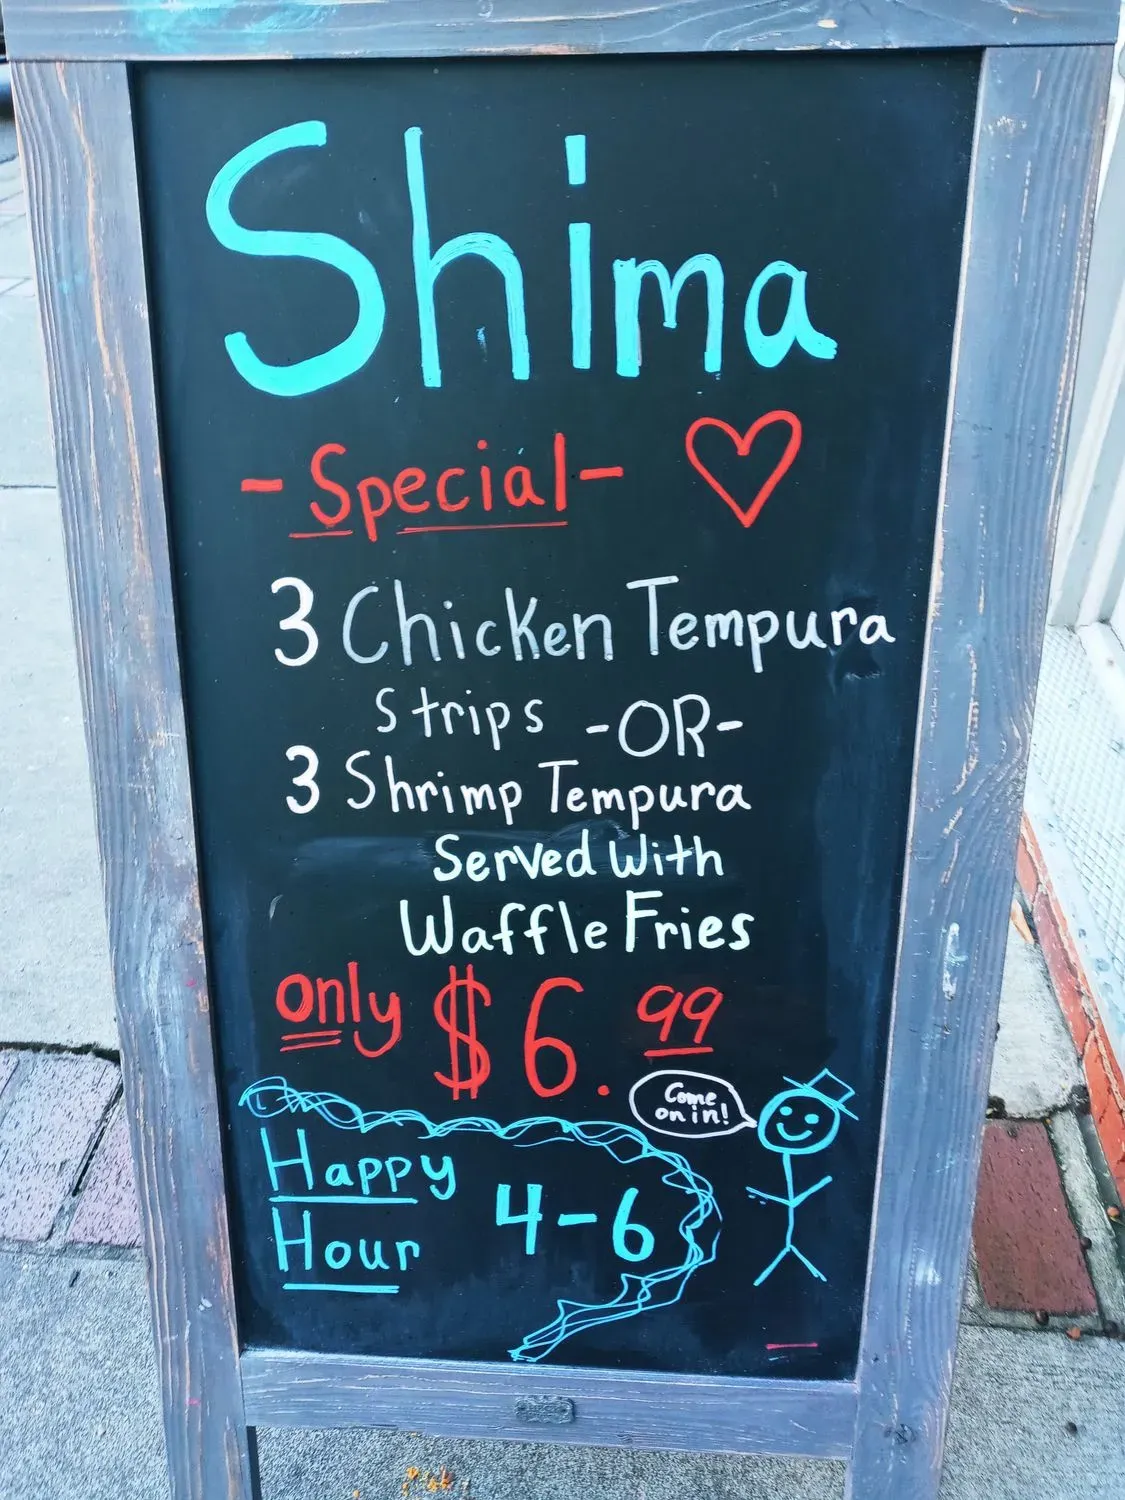 Shima
-Special-
3 Chicken Tempura
Strips -OR-
3 Shrimp Tempura
Served With
Waffle Fries
only $6.99
Come
on in!
Happy
Hour 4-6